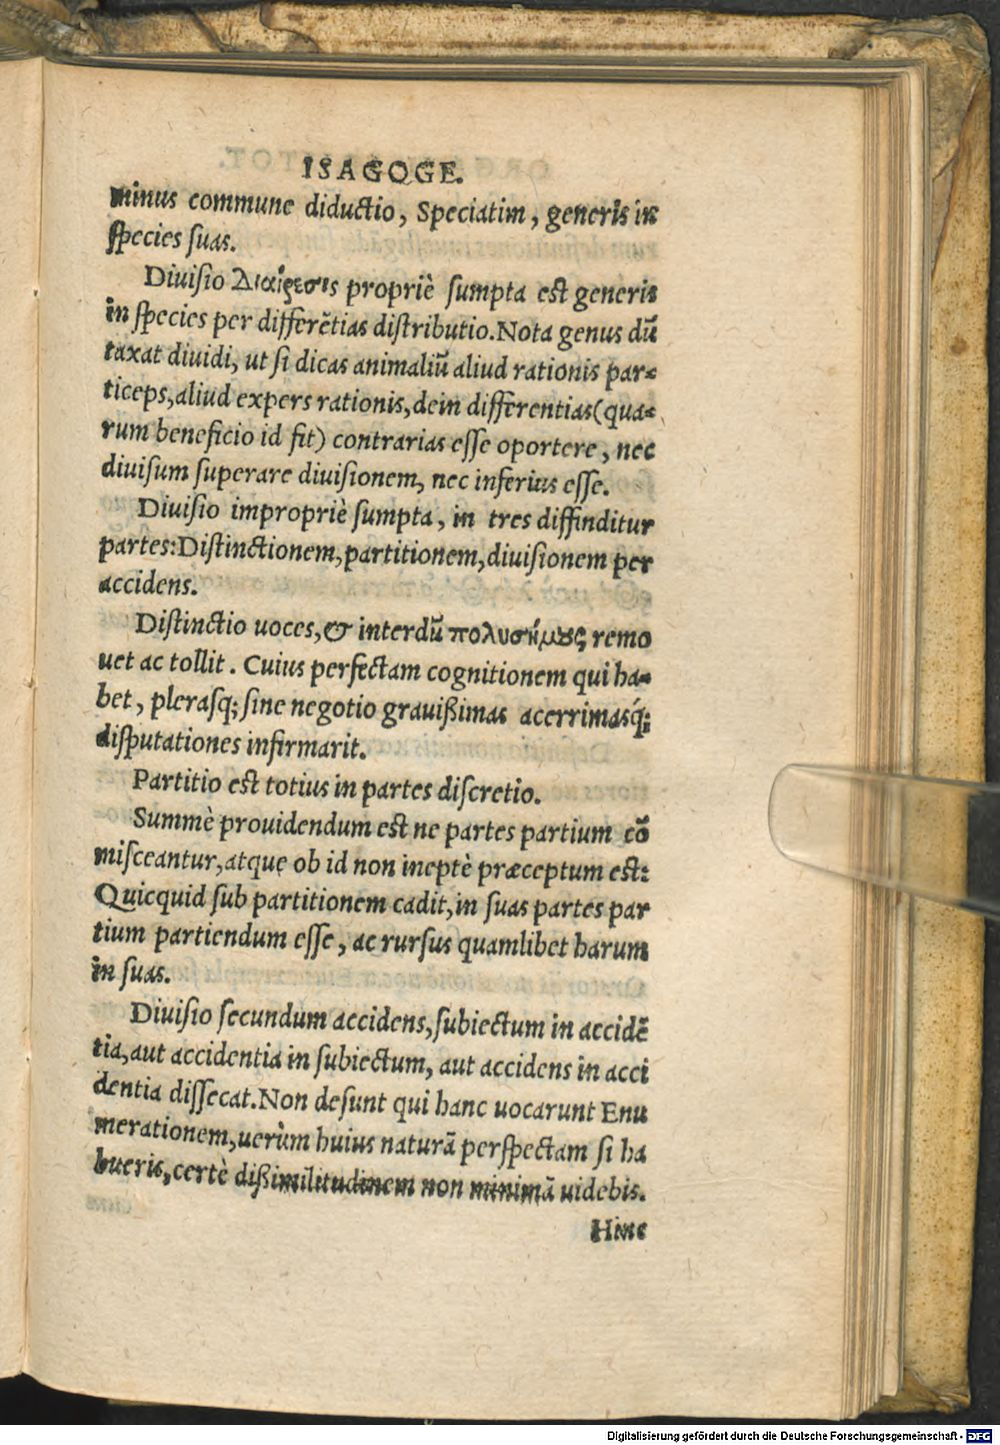 ISAGOGE.
minus commune diductio, Speciatim, generis in
species suas.
Diuisio Διαίρεσις propriè sumpta est generis
in species per differẽtias distributio. Nota genus dũ
taxat diuidi, ut si dicas animaliũ aliud rationis par-
ticeps, aliud expers rationis, dein differentias (qua-
rum beneficio id fit) contrarias esse oportere, nec
diuisum superare diuisionem, nec inferius esse.
Diuisio impropriè sumpta, in tres diffinditur
partes: Distinctionem, partitionem, diuisionem per
accidens.
Distinctio uoces, & interdũ πολυσήμους remo
uet ac tollit. Cuius perfectam cognitionem qui ha-
bet, plerasq; sine negotio grauißimas acerrimasq́;
disputationes infirmarit.
Partitio est totius in partes discretio.
Summè prouidendum est ne partes partium cõ
misceantur, atque ob id non ineptè præceptum est:
Quicquid sub partitionem cadit, in suas partes par
tium partiendum esse, ac rursus quamlibet harum
in suas.
Diuisio secundum accidens, subiectum in accidẽ
tia, aut accidentia in subiectum, aut accidens in acci
dentia dissecat. Non desunt qui hanc uocarunt Enu
merationem, uerùm huius naturã perspectam si ha
bueris, certè dißimilitudinem non minimã uidebis.
Hinc
Digitalisierung gefördert durch die Deutsche Forschungsgemeinschaft - DFG